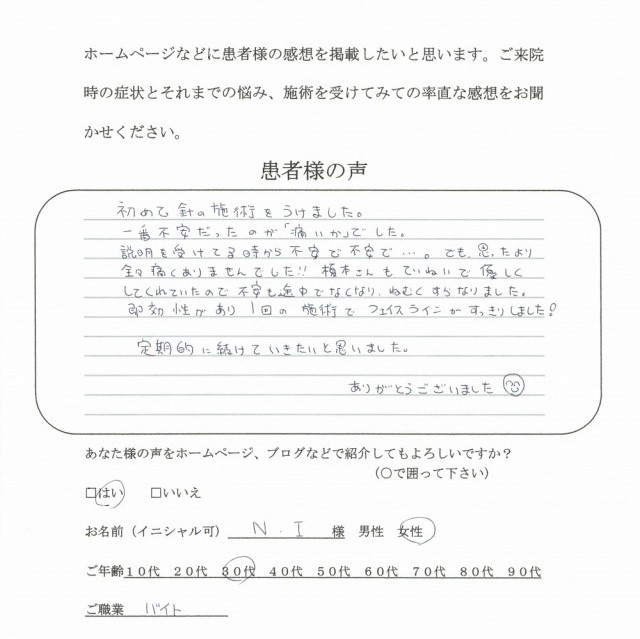 ホームページなどに患者様の感想を掲載したいと思います。ご来院
時の症状とそれまでの悩み、施術を受けてみての率直な感想をお聞
かせください。
患者様の声
初めて針の施術をうけました。
一番不安だったのが「痛いか」でした。
説明を受けてる時から不安で不安で…。でも、思ったより
全々痛くありませんでした!! 植本さんもていねいで優しく
してくれていたので不安も途中でなくなり、ねむくすらなりました。
即効性があり1回の施術でフェイスラインがすっきりしました!
定期的に続けていきたいと思いました。
ありがとうございました
あなた様の声をホームページ、ブログなどで紹介してもよろしいですか?
(○で囲って下さい)
□はい □いいえ
お名前(イニシャル可) N.I 様 男性 女性
ご年齢 10代 20代 30代 40代 50代 60代 70代 80代 90代
ご職業 バイト